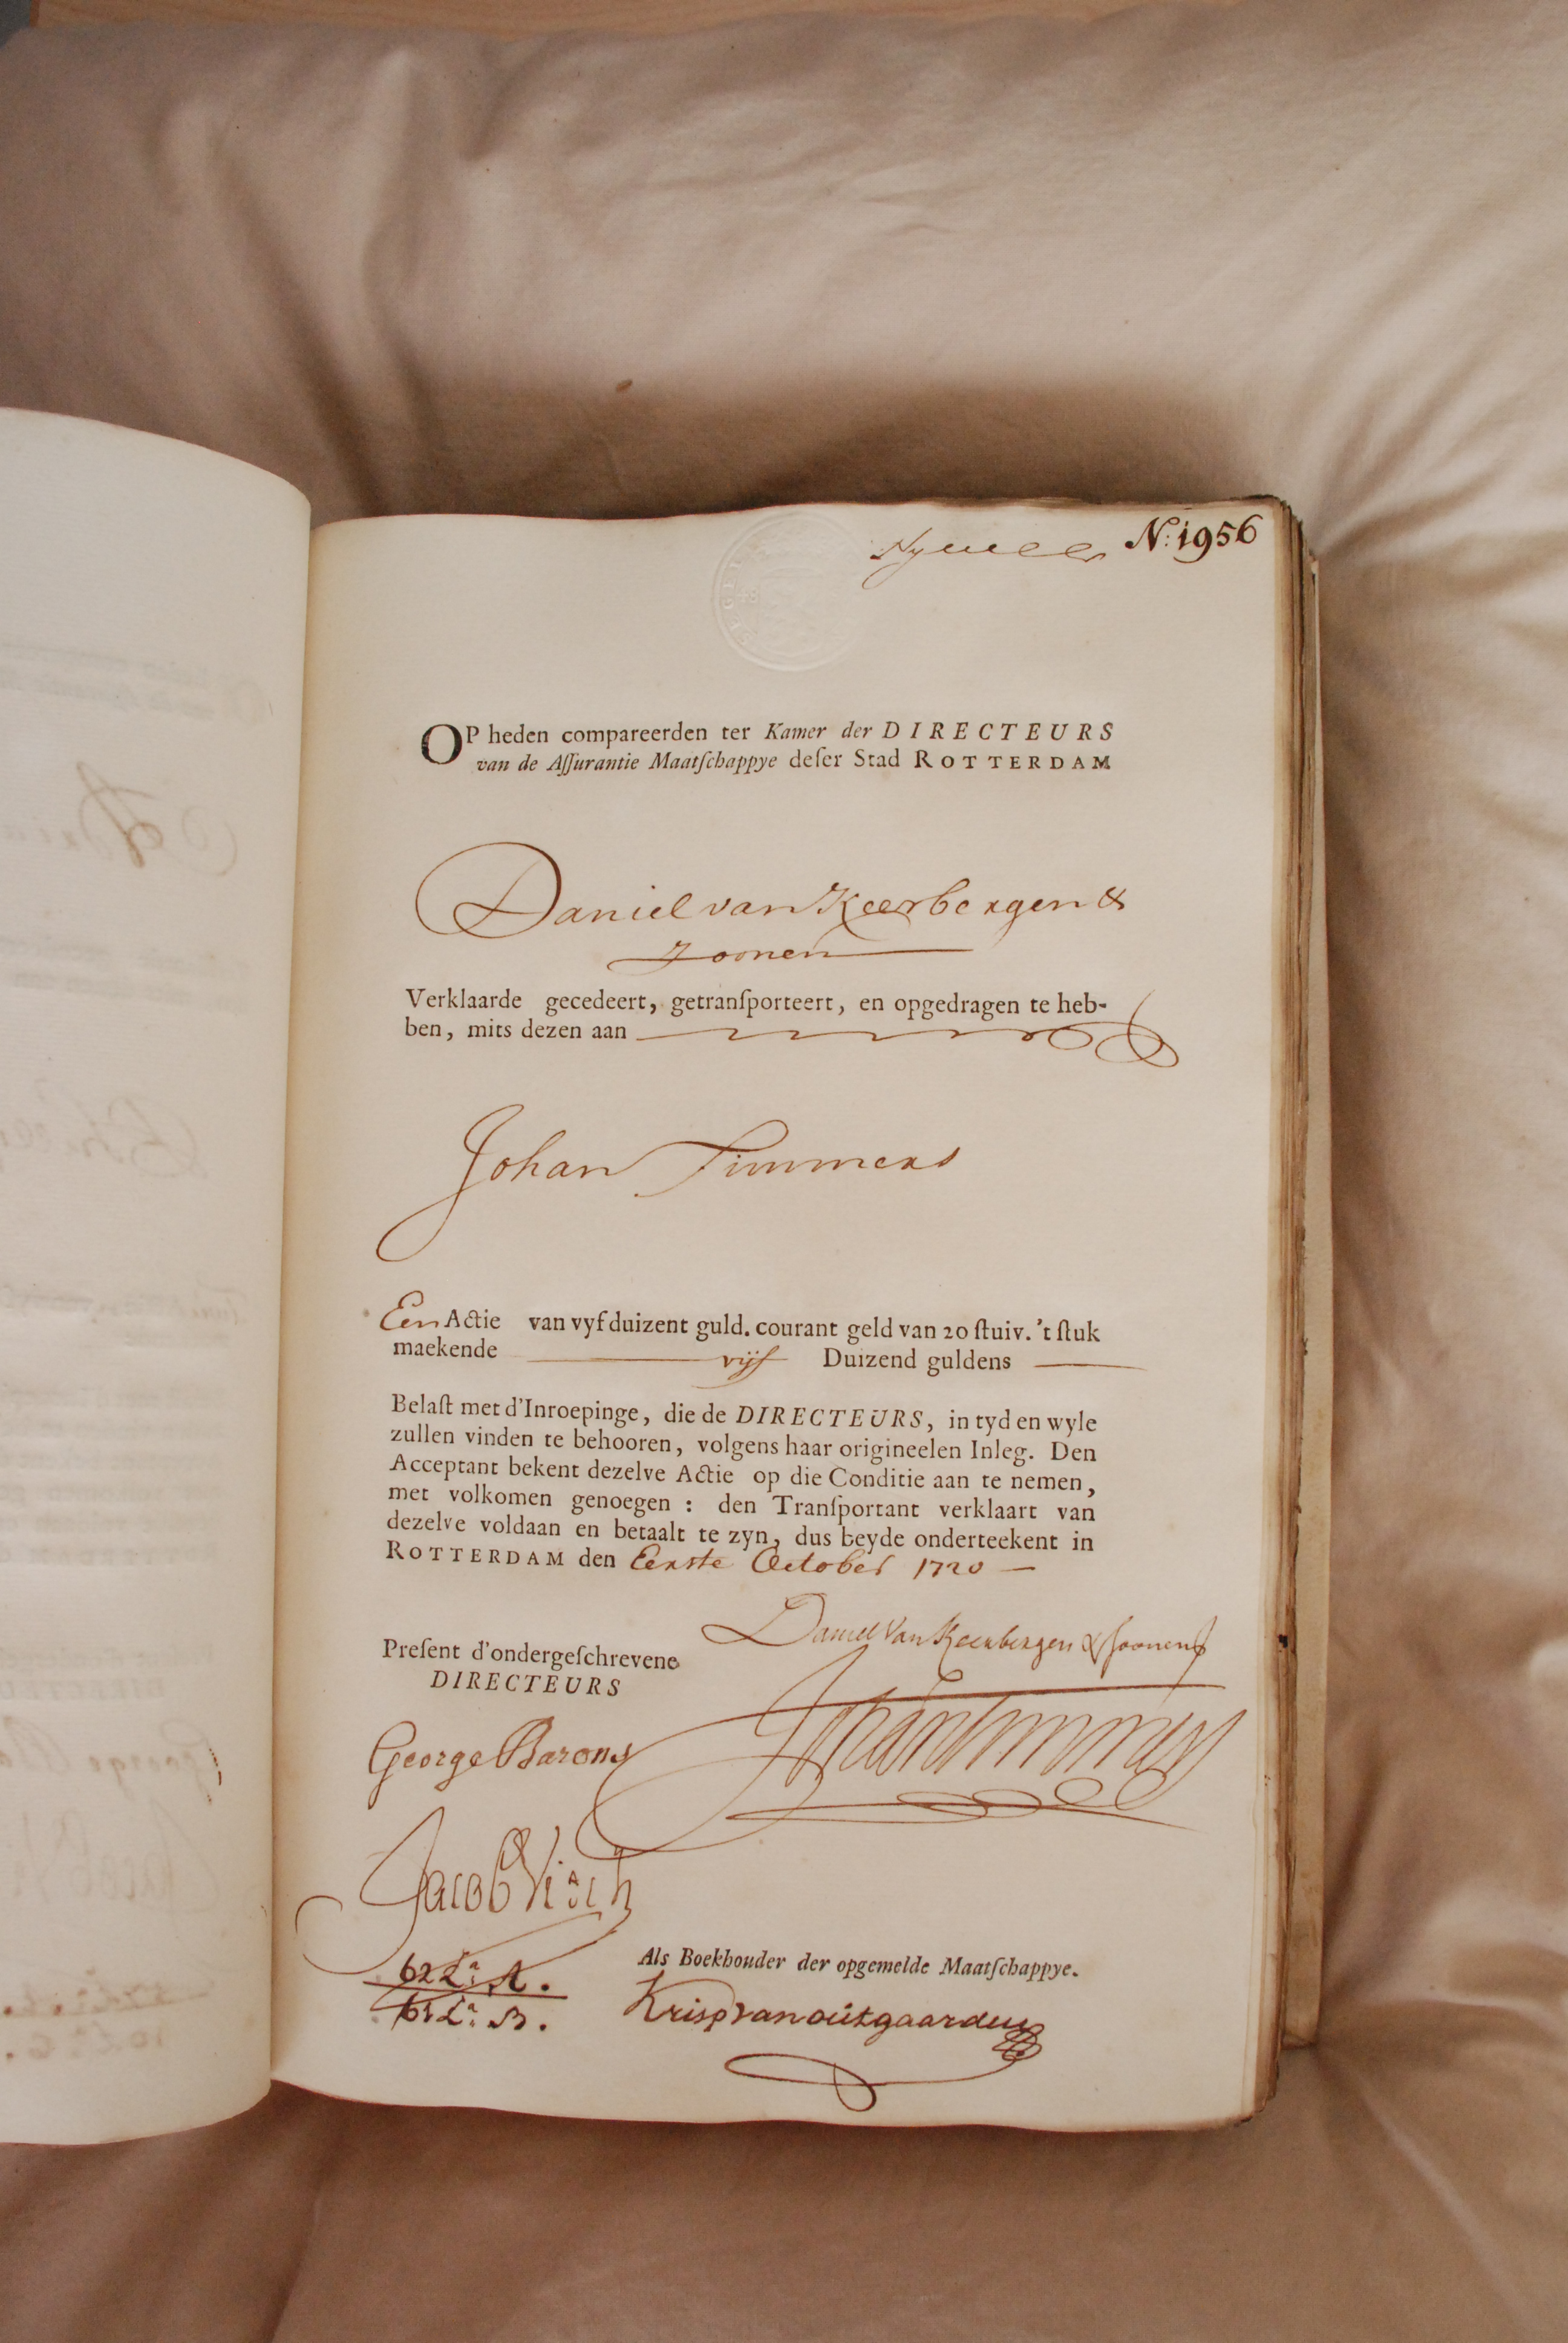 N: 1956
OP heden compareerden ter Kamer der DIRECTEURS
van de Aſſurantie Maatſchappye deſer Stad ROTTERDAM
Daniel van Keerbergen &
Zoonen
Verklaarde gecedeert, getranſporteert, en opgedragen te heb-
ben, mits dezen aan
Johan Timmers
Een Actie van vyf duizent guld. courant geld van 20 ſtuiv. 't ſtuk
maekende vijf Duizend guldens
Belaſt met d'Inroepinge, die de DIRECTEURS, in tyd en wyle
zullen vinden te behooren, volgens haar origineelen Inleg. Den
Acceptant bekent dezelve Actie op die Conditie aan te nemen,
met volkomen genoegen : den Tranſportant verklaart van
dezelve voldaan en betaalt te zyn, dus beyde onderteekent in
ROTTERDAM den Eerste October 1720
Daniel Van Keerbergen & Zoonen
Preſent d'ondergeſchrevene
DIRECTEURS
Johan Timmers
George Barons
Jacob Visch
Als Boekhouder der opgemelde Maatſchappye.
62 La: A.
61 La: B.
Krisp van outgaarden